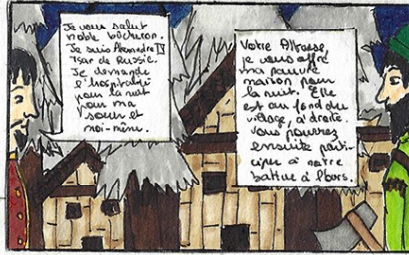 Je vous salut
noble bûcheron.
Je suis Alexandre IV
Tsar de Russie.
Je demande
l'hospitalité
pour la nuit
pour ma
sœur et
moi-même.
Votre Altesse,
je vous offre
ma pauvre
maison pour
la nuit. Elle
est au fond du
village, à droite.
Vous pourrez
ensuite parti-
ciper à notre
battue à l'ours.